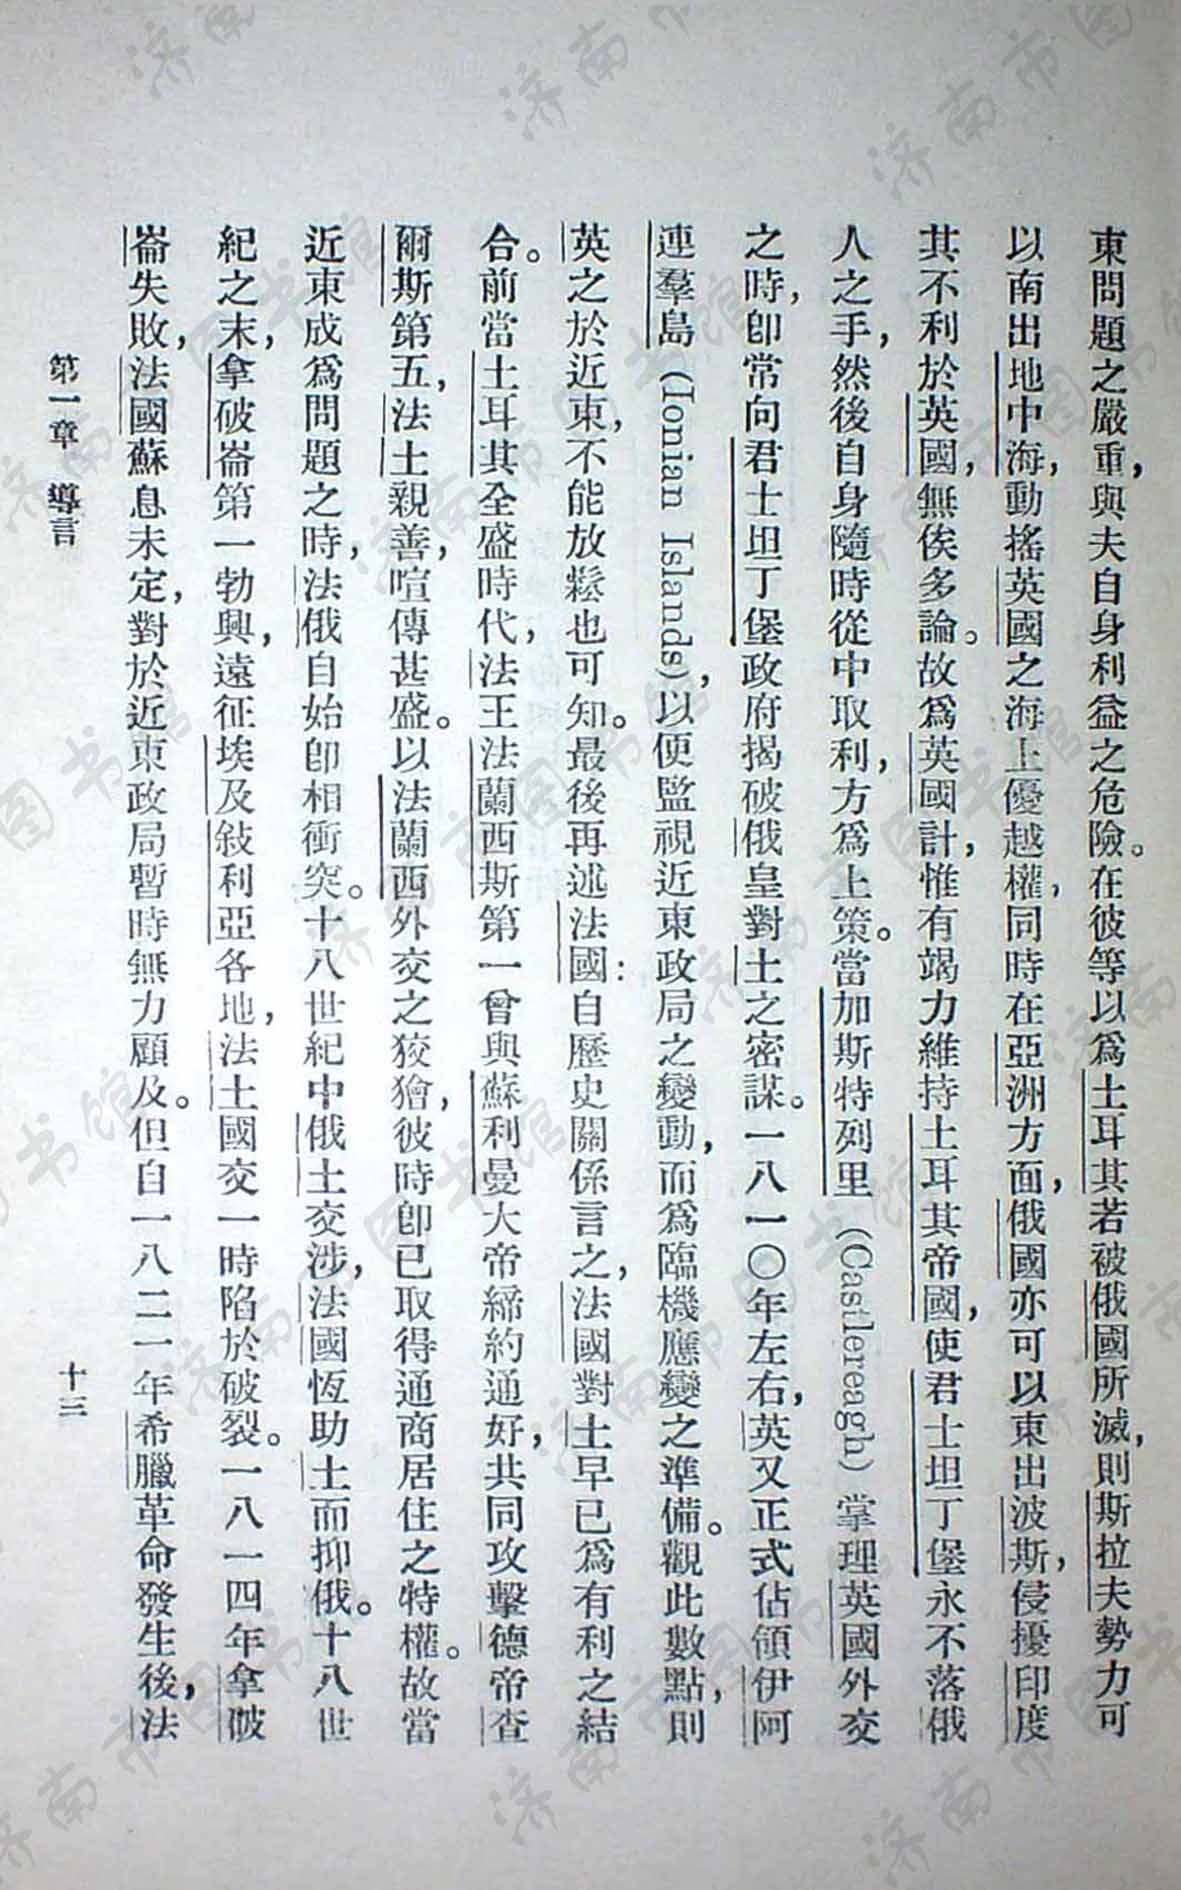 東問題之嚴重，與夫自身利益之危險。在彼等以爲土耳其若被俄國所滅，則斯拉夫勢力可
以南出地中海，動搖英國之海上優越權，同時在亞洲方面，俄國亦可以東出波斯，侵擾印度
其不利於英國，無俟多論。故爲英國計，惟有竭力維持土耳其帝國，使君士坦丁堡永不落俄
人之手，然後自身隨時從中取利，方爲上策。當加斯特列里（Castlereagh）掌理英國外交
之時，卽常向君士坦丁堡政府揭破俄皇對土之密謀。一八一〇年左右，英又正式佔領伊阿
連羣島（Ionian Islands），以便監視近東政局之變動，而爲臨機應變之準備。觀此數點，則
英之於近東，不能放鬆也可知。最後再述法國：自歷史關係言之，法國對土早已爲有利之結
合。前當土耳其全盛時代，法王法蘭西斯第一曾與蘇利曼大帝締約通好，共同攻擊德帝查
爾斯第五，法土親善，喧傳甚盛。以法蘭西外交之狡獪，彼時卽已取得通商居住之特權。故當
近東成爲問題之時，法俄自始卽相衝突。十八世紀中俄土交涉，法國恆助土而抑俄。十八世
紀之末，拿破崙第一勃興，遠征埃及敍利亞各地，法土國交一時陷於破裂。一八一四年拿破
崙失敗，法國蘇息未定，對於近東政局暫時無力顧及。但自一八二一年希臘革命發生後，法
第一章 導言
十三
濟南市图书馆